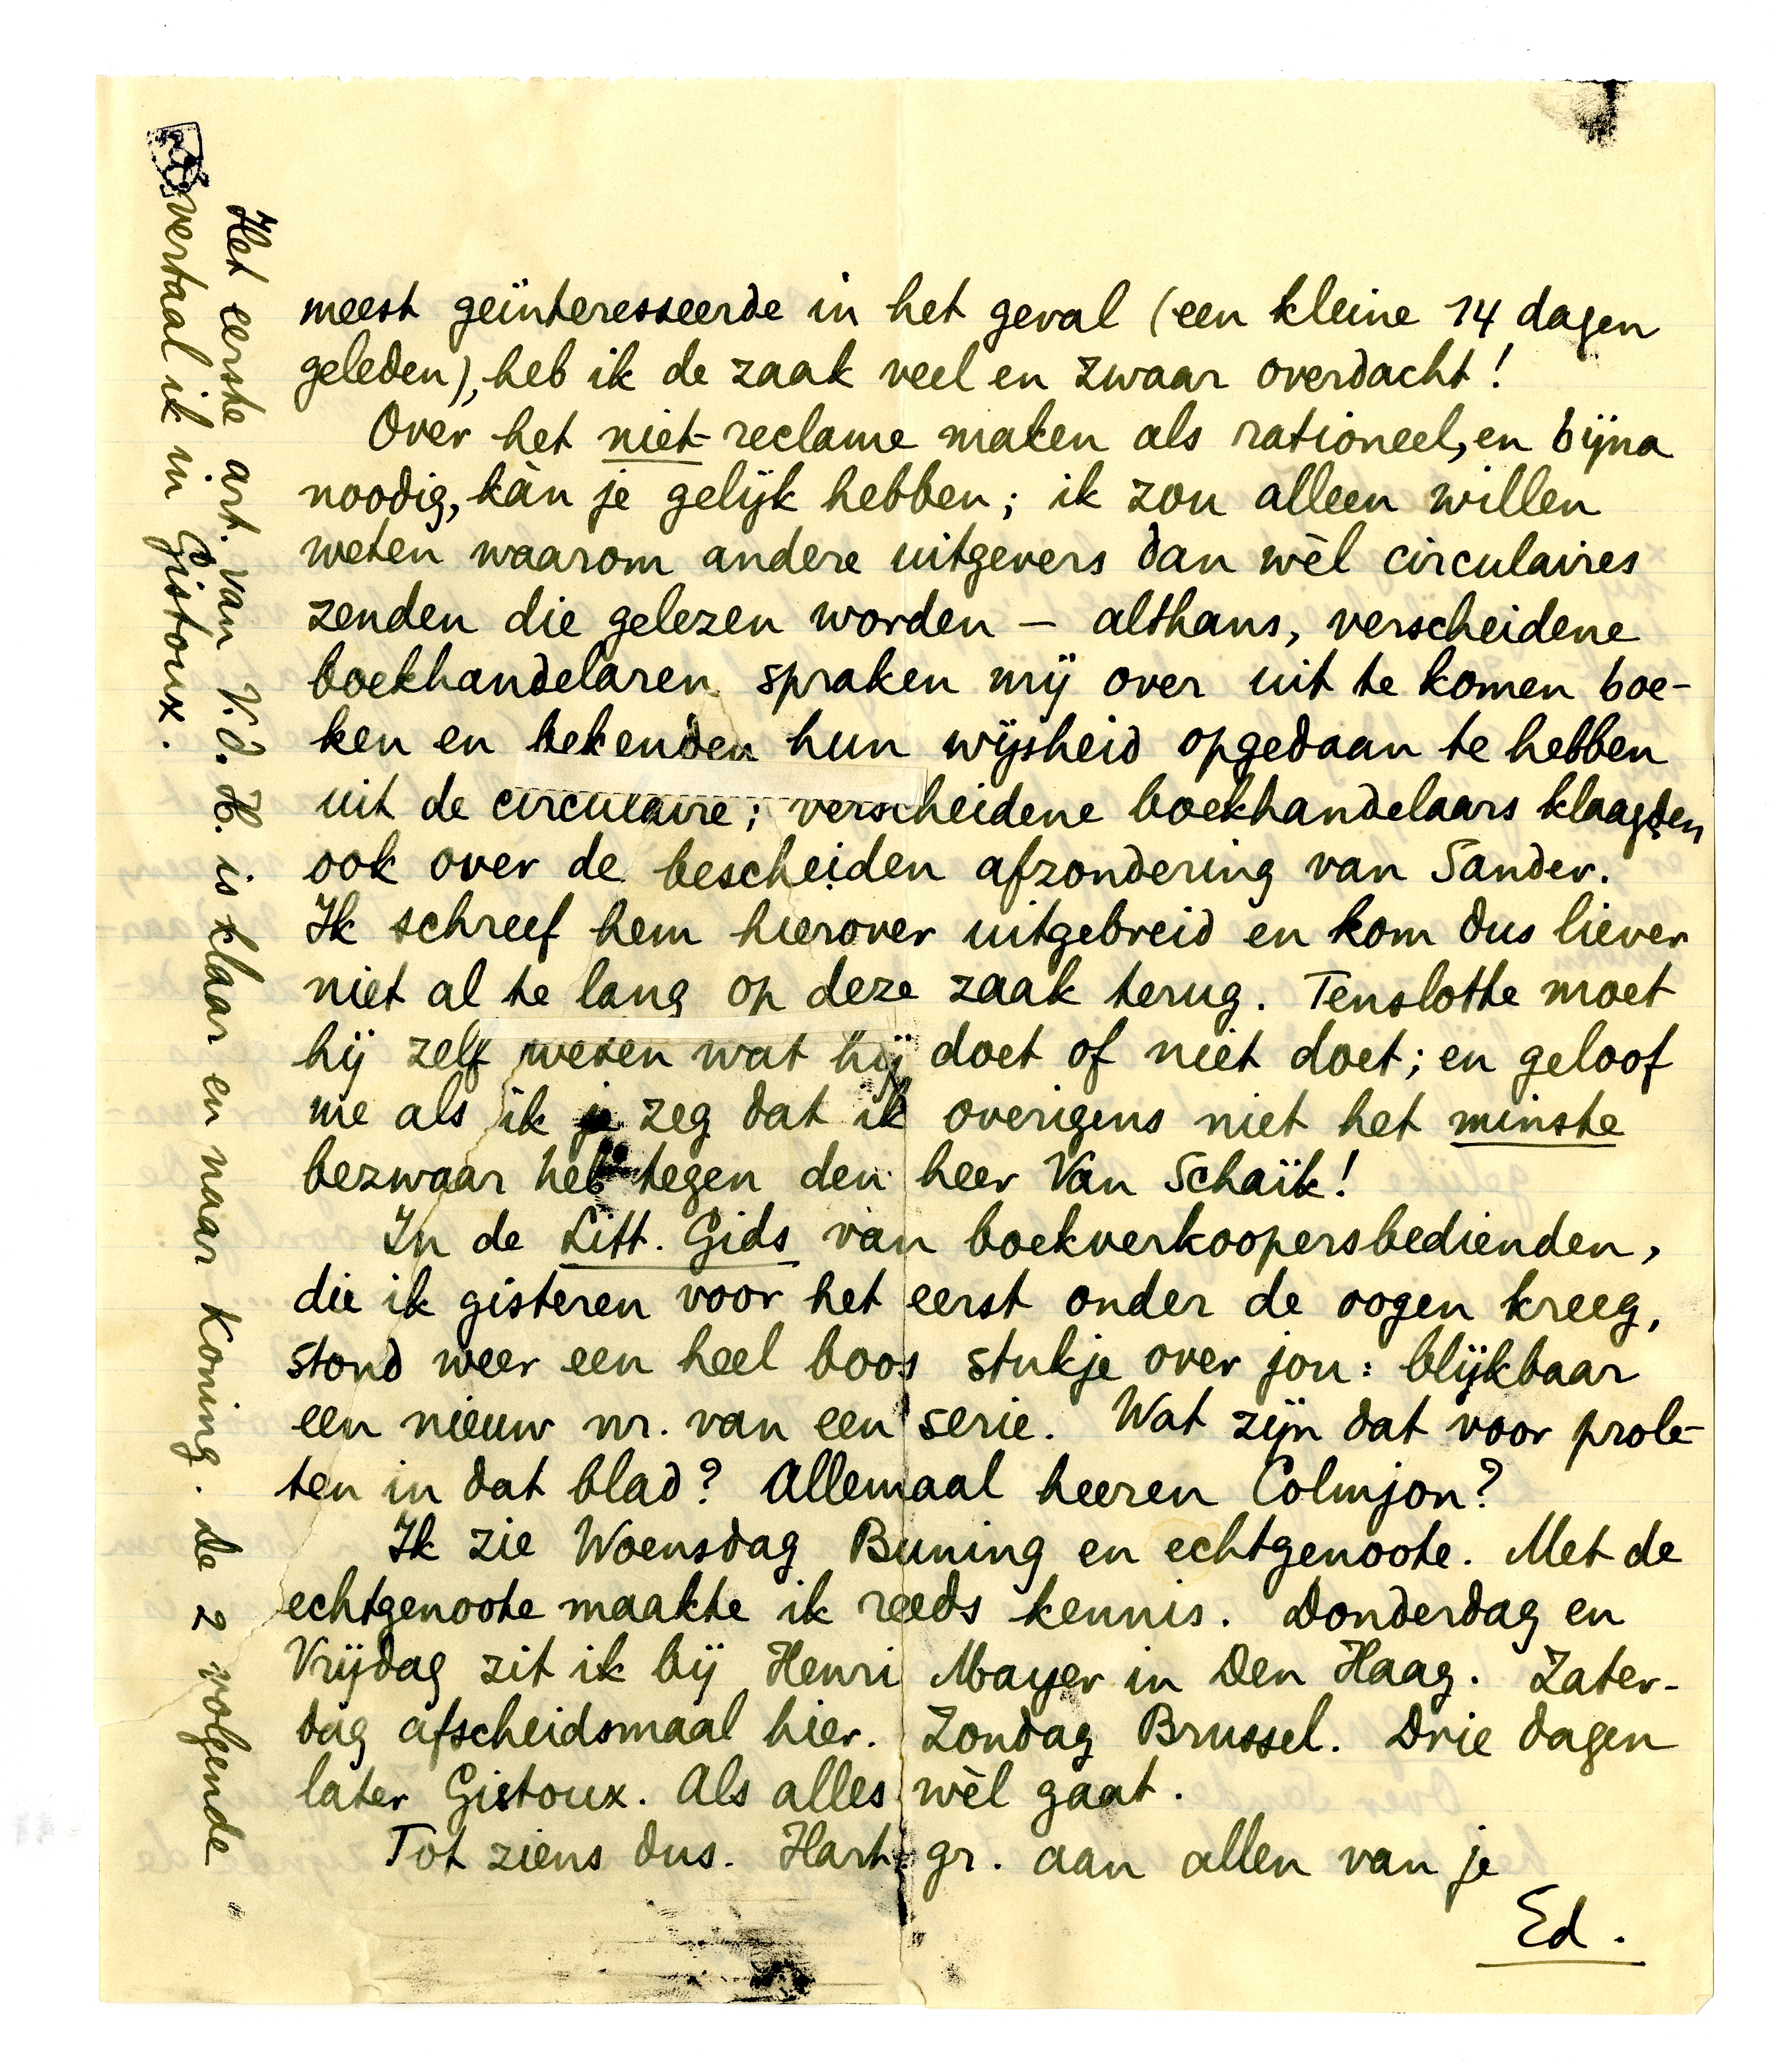 meest geïnteresseerde in het geval (een kleine 14 dagen
geleden), heb ik de zaak veel en zwaar overdacht!
Over het niet-reclame maken als rationeel, en bijna
noodig, kàn je gelijk hebben; ik zou alleen willen
weten waarom andere uitgevers dan wèl circulaires
zenden die gelezen worden – althans, verscheidene
boekhandelaren spraken mij over uit te komen boe-
ken en bekenden hun wijsheid opgedaan te hebben
uit de circulaire; verscheidene boekhandelaars klaagden
ook over de bescheiden afzondering van Sander.
Ik schreef hem hierover uitgebreid en kom dus liever
niet al te lang op deze zaak terug. Tenslotte moet
hij zelf weten wat hij doet of niet doet; en geloof
me als ik je zeg dat ik overigens niet het minste
bezwaar heb tegen den heer Van Schaïk!
In de Litt. Gids van boekverkoopersbedienden,
die ik gisteren voor het eerst onder de oogen kreeg,
stond weer een heel boos stukje over jou: blijkbaar
een nieuw nr. van een serie. Wat zijn dat voor prole-
ten in dat blad? Allemaal heeren Colmjon?
Ik zie Woensdag Buning en echtgenoote. Met de
echtgenoote maakte ik reeds kennis. Donderdag en
Vrijdag zit ik bij Henri Mayer in Den Haag. Zater-
dag afscheidsmaal hier. Zondag Brussel. Drie dagen
later Gistoux. Als alles wèl gaat.
Tot ziens dus. Hart. gr. aan allen van je
Ed.
Het eerste art. van V.d.H. is klaar en naar Koning. de 2 volgende
vertaal ik in Gistoux.